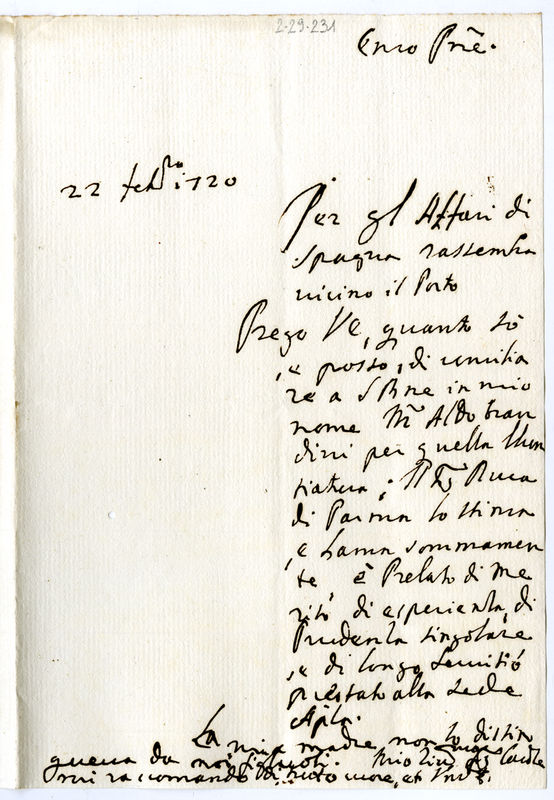 2-29-231
Emo Pñe.
22 feb.ro 1720
Per gl Affari di
Spagna rassembra
vicino il Porto
Prego VE, quanto sò
, e posso, di umilia
re a SBne in mio
nome M.r Aldobran
dini per quella Nun
tiatura; Il Sg Duca
di Parma lo stima
, e l'ama sommamen
te, è Prelato di me
rito di esperienza, di
Prudenza singolare
, e di longo servitio
prestato alla Sede
Aplica.
La mia madre non lo distin
gueva da noi figlioli. Mio
mi raccomando di tutto cuore, et